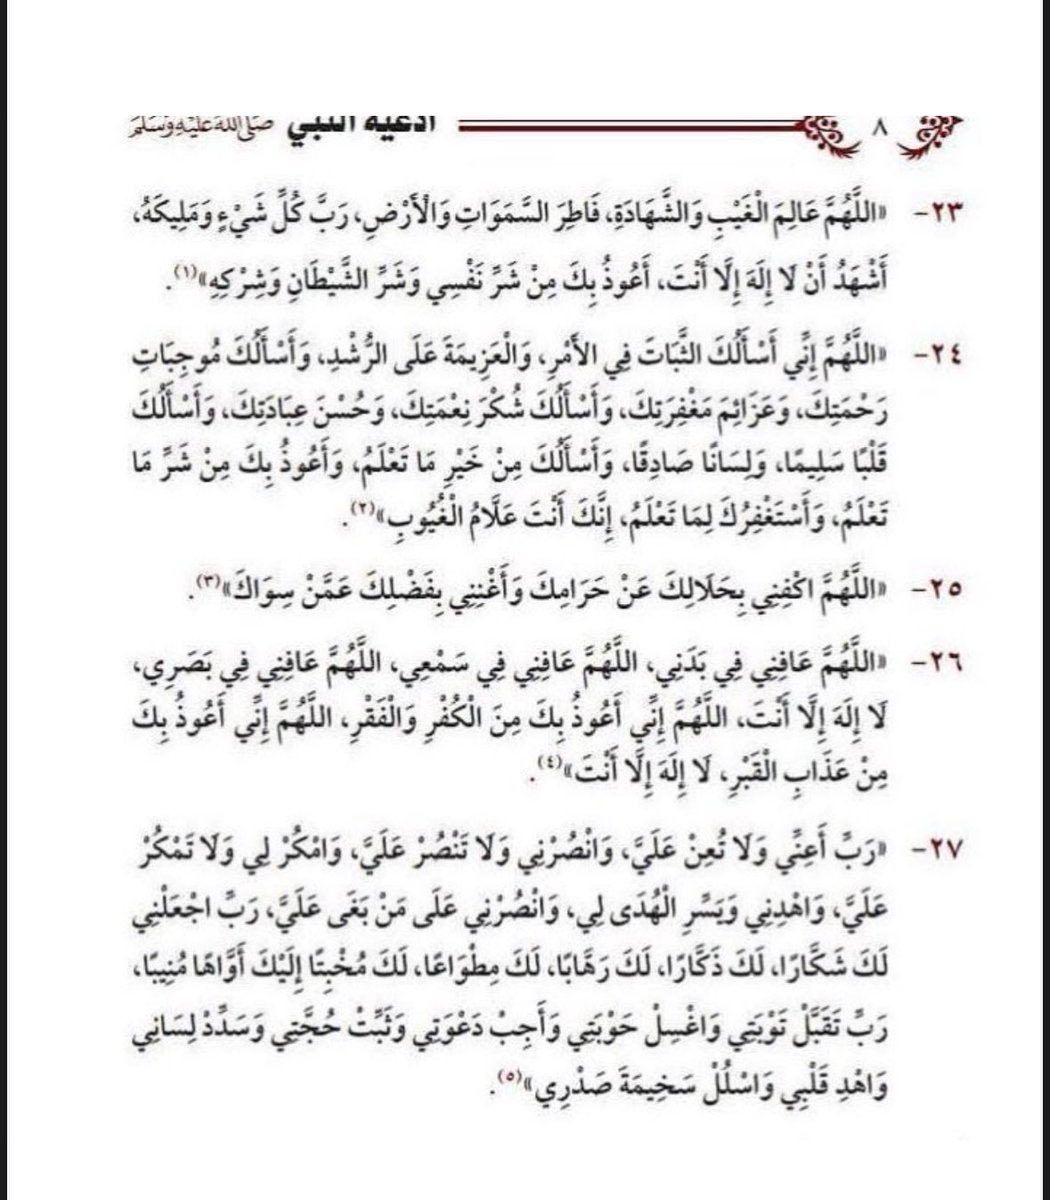 ٨ أدعية النبي صَلَّى اللَّهُ عَلَيْهِ وَسَلَّمَ
٢٣- «اللَّهُمَّ عَالِمَ الْغَيْبِ وَالشَّهَادَةِ، فَاطِرَ السَّمَوَاتِ وَالْأَرْضِ، رَبَّ كُلِّ شَيْءٍ وَمَلِيكَهُ،
أَشْهَدُ أَنْ لَا إِلَهَ إِلَّا أَنْتَ، أَعُوذُ بِكَ مِنْ شَرِّ نَفْسِي وَشَرِّ الشَّيْطَانِ وَشِرْكِهِ»(١).
٢٤- «اللَّهُمَّ إِنِّي أَسْأَلُكَ الثَّبَاتَ فِي الأَمْرِ، وَالْعَزِيمَةَ عَلَى الرُّشْدِ، وَأَسْأَلُكَ مُوجِبَاتِ
رَحْمَتِكَ، وَعَزَائِمَ مَغْفِرَتِكَ، وَأَسْأَلُكَ شُكْرَ نِعْمَتِكَ، وَحُسْنَ عِبَادَتِكَ، وَأَسْأَلُكَ
قَلْبًا سَلِيمًا، وَلِسَانًا صَادِقًا، وَأَسْأَلُكَ مِنْ خَيْرِ مَا تَعْلَمُ، وَأَعُوذُ بِكَ مِنْ شَرِّ مَا
تَعْلَمُ، وَأَسْتَغْفِرُكَ لِمَا تَعْلَمُ، إِنَّكَ أَنْتَ عَلَّامُ الْغُيُوبِ»(٢).
٢٥- «اللَّهُمَّ اكْفِنِي بِحَلَالِكَ عَنْ حَرَامِكَ وَأَغْنِنِي بِفَضْلِكَ عَمَّنْ سِوَاكَ»(٣).
٢٦- «اللَّهُمَّ عَافِنِي فِي بَدَنِي، اللَّهُمَّ عَافِنِي فِي سَمْعِي، اللَّهُمَّ عَافِنِي فِي بَصَرِي،
لَا إِلَهَ إِلَّا أَنْتَ، اللَّهُمَّ إِنِّي أَعُوذُ بِكَ مِنَ الْكُفْرِ وَالْفَقْرِ، اللَّهُمَّ إِنِّي أَعُوذُ بِكَ
مِنْ عَذَابِ الْقَبْرِ، لَا إِلَهَ إِلَّا أَنْتَ»(٤).
٢٧- «رَبِّ أَعِنِّي وَلَا تُعِنْ عَلَيَّ، وَانْصُرْنِي وَلَا تَنْصُرْ عَلَيَّ، وَامْكُرْ لِي وَلَا تَمْكُرْ
عَلَيَّ، وَاهْدِنِي وَيَسِّرِ الْهُدَى لِي، وَانْصُرْنِي عَلَى مَنْ بَغَى عَلَيَّ، رَبِّ اجْعَلْنِي
لَكَ شَكَّارًا، لَكَ ذَكَّارًا، لَكَ رَهَّابًا، لَكَ مِطْوَاعًا، لَكَ مُخْبِتًا إِلَيْكَ أَوَّاهًا مُنِيبًا،
رَبِّ تَقَبَّلْ تَوْبَتِي وَاغْسِلْ حَوْبَتِي وَأَجِبْ دَعْوَتِي وَثَبِّتْ حُجَّتِي وَسَدِّدْ لِسَانِي
وَاهْدِ قَلْبِي وَاسْلُلْ سَخِيمَةَ صَدْرِي»(٥).